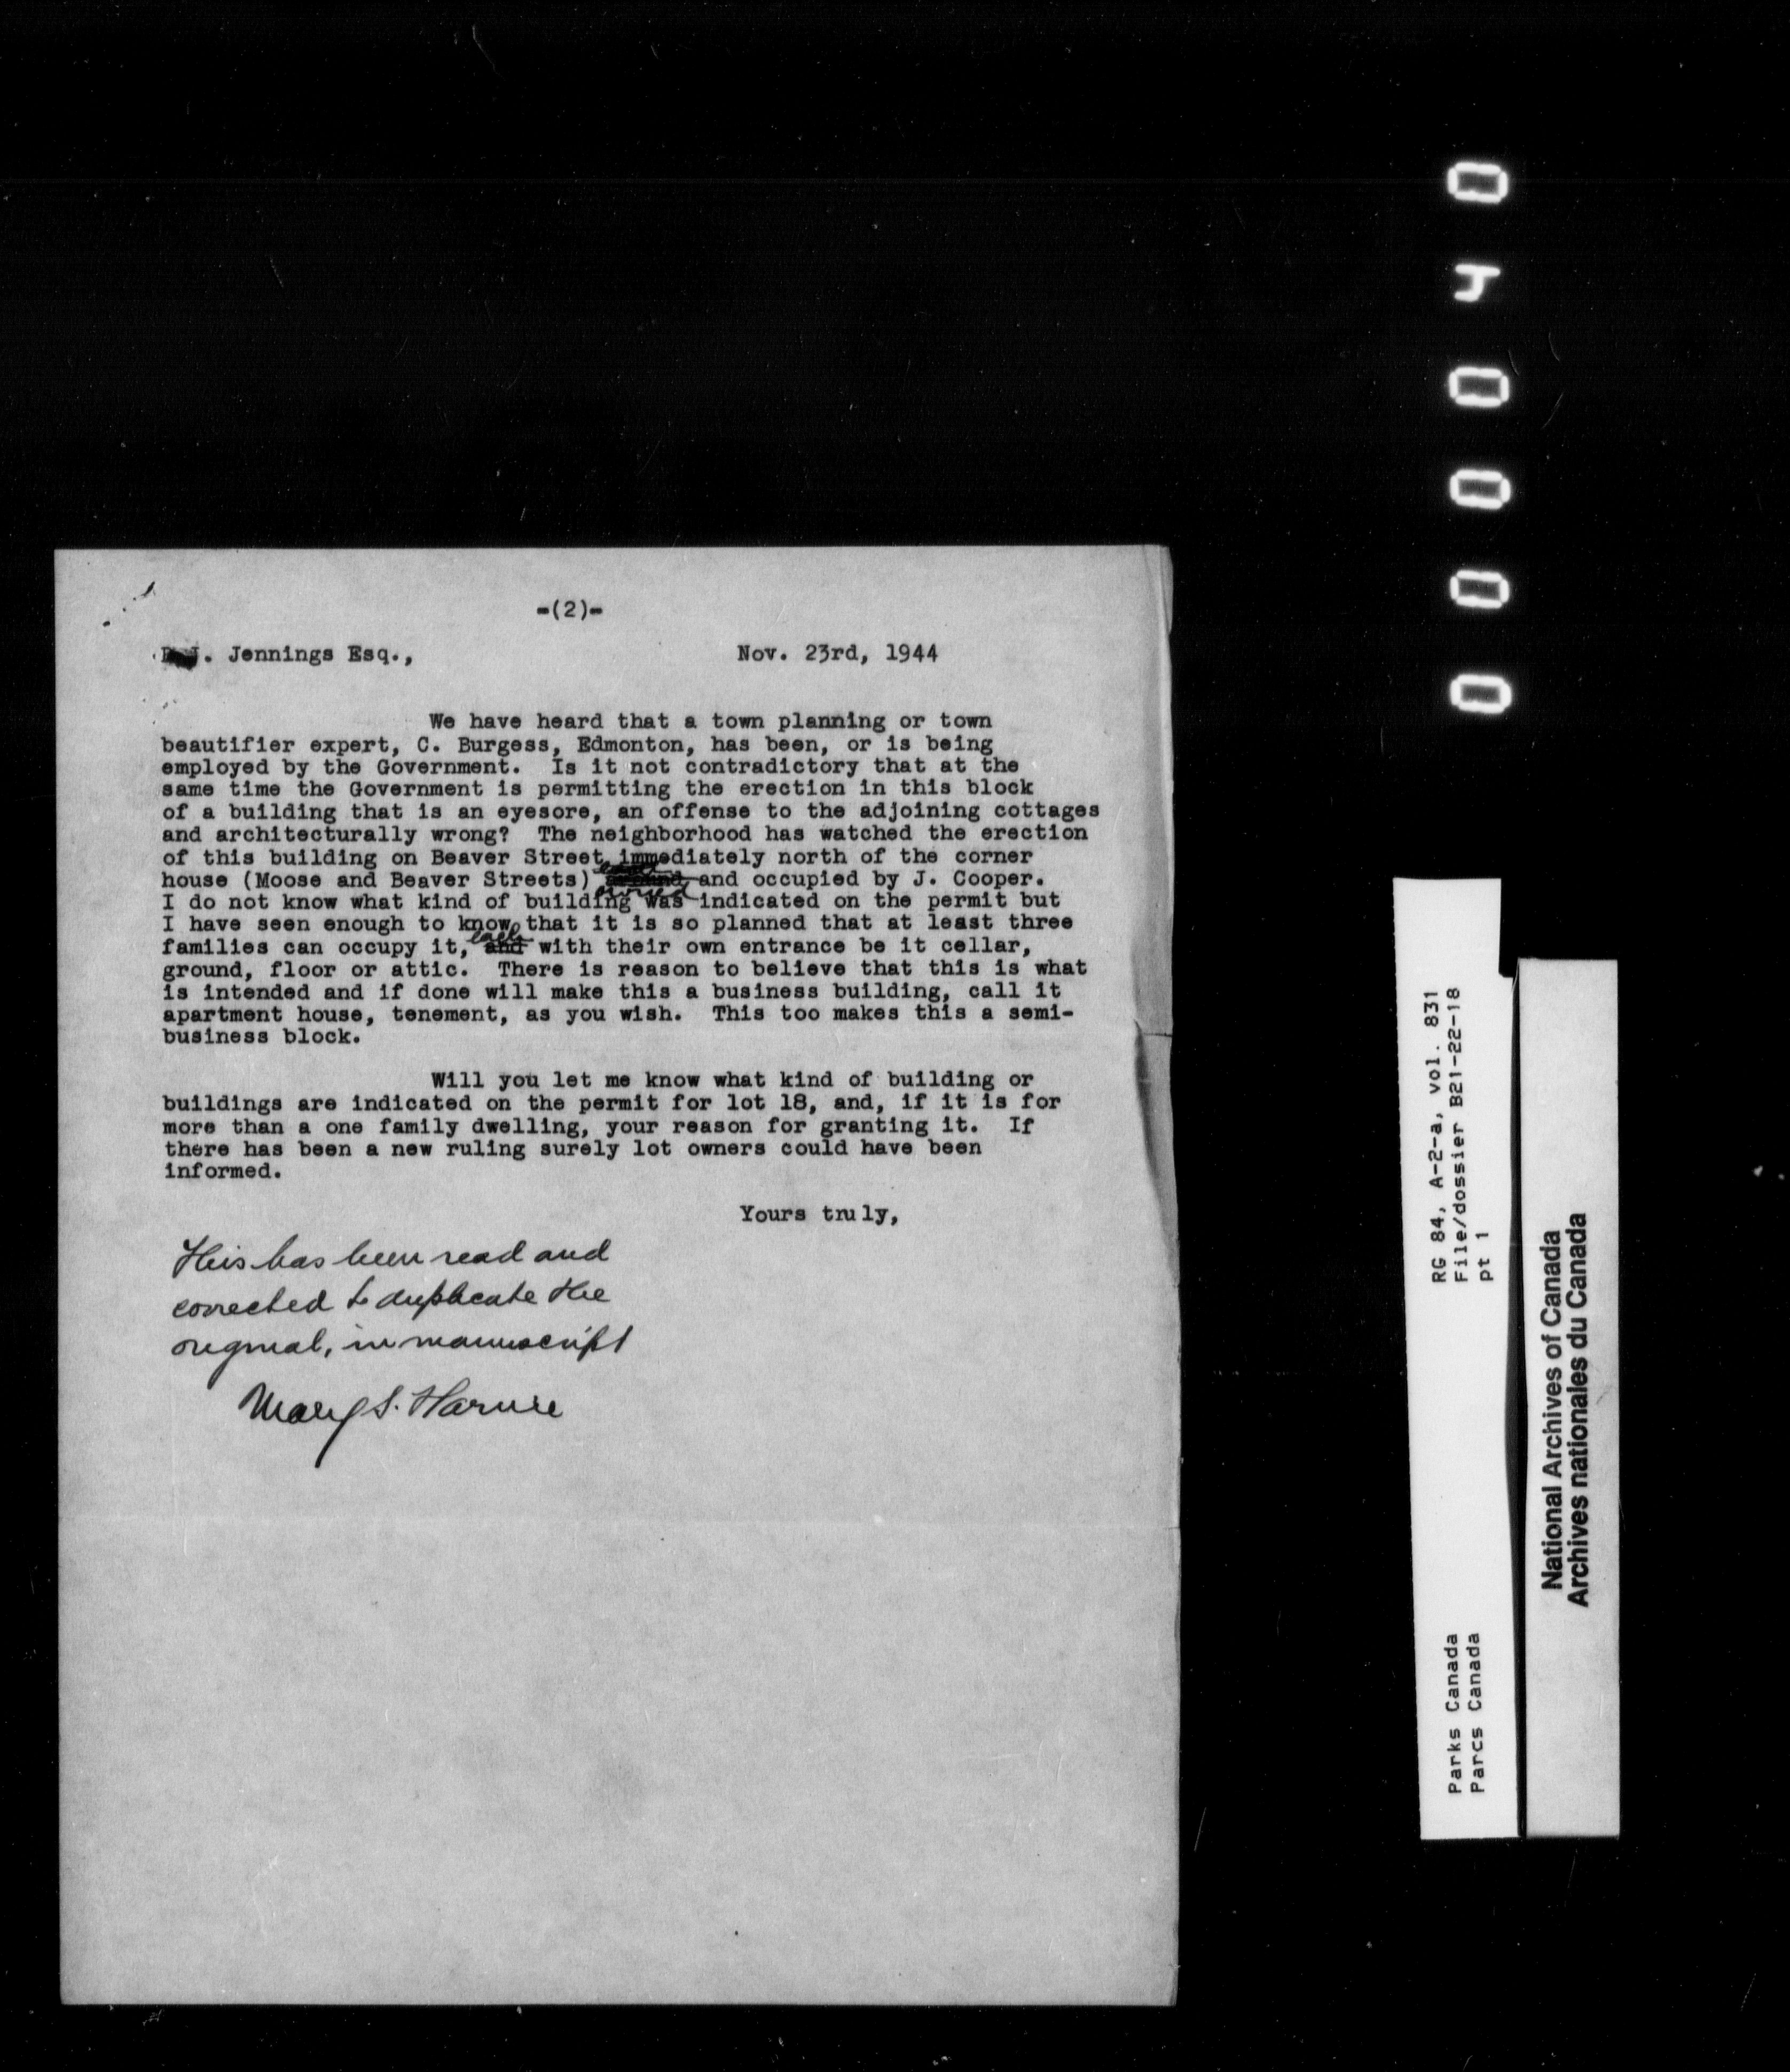 -(2)-
J. Jennings Esq., Nov. 23rd, 1944
We have heard that a town planning or town
beautifier expert, C. Burgess, Edmonton, has been, or is being
employed by the Government. Is it not contradictory that at the
same time the Government is permitting the erection in this block
of a building that is an eyesore, an offense to the adjoining cottages
and architecturally wrong? The neighborhood has watched the erection
of this building on Beaver Street immediately north of the corner
house (Moose and Beaver Streets) owned and occupied by J. Cooper.
I do not know what kind of building was indicated on the permit but
I have seen enough to know that it is so planned that at least three
families can occupy it, each with their own entrance be it cellar,
ground, floor or attic. There is reason to believe that this is what
is intended and if done will make this a business building, call it
apartment house, tenement, as you wish. This too makes this a semi-
business block.
Will you let me know what kind of building or
buildings are indicated on the permit for lot 18, and, if it is for
more than a one family dwelling, your reason for granting it. If
there has been a new ruling surely lot owners could have been
informed.
Yours truly,
This has been read and
corrected to duplicate the
original, in manuscript
Mary S.
0 J 0 0 0 0
RG 84, A-2-a, vol. 831
File/dossier B21-22-18
pt 1
Parks Canada
Parcs Canada
National Archives of Canada
Archives nationales du Canada